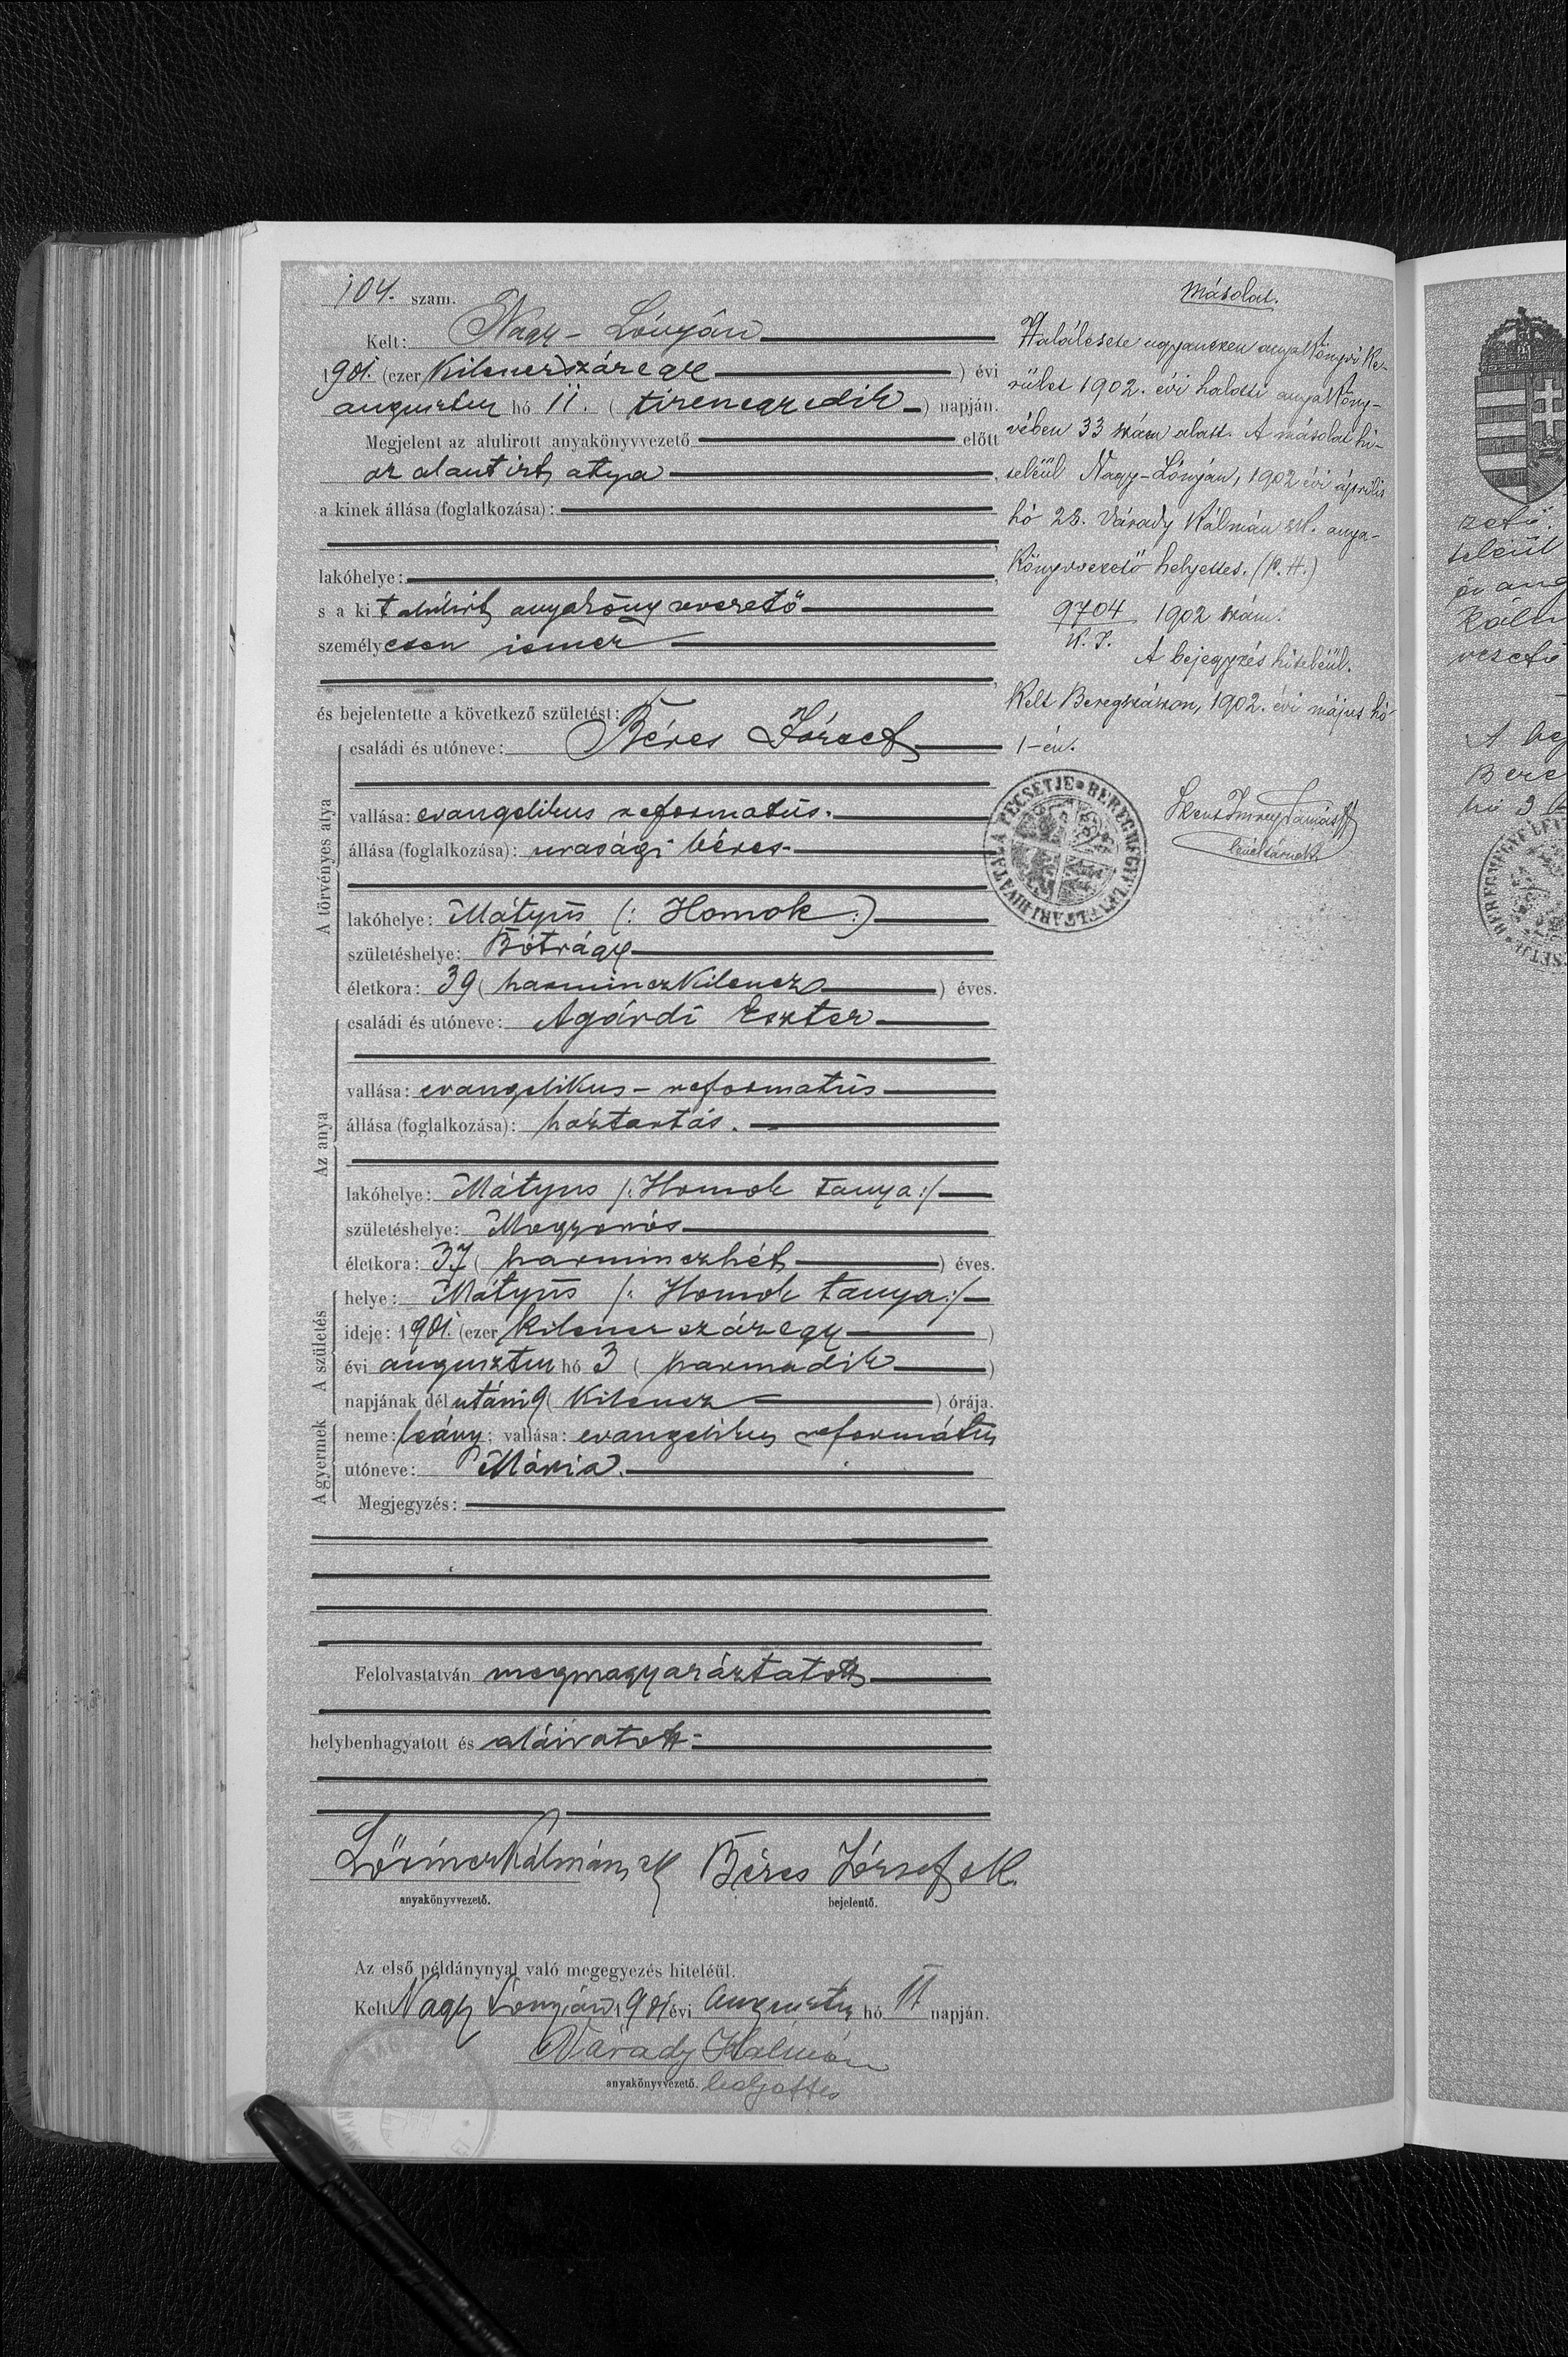 104. szám.
Kelt: Nagy-Lónyán
1901. (ezer kilenczszázegy ) évi
augusztus hó 11. ( tizenegyedik ) napján.
Megjelent az alulirott anyakönyvvezető előtt
az alantirt atya ,
a kinek állása (foglalkozása):
,
lakóhelye: ,
s a kit alulirt anyakönyvvezető
személyesen ismer
,
és bejelentette a következő születést:
A törvényes atya
családi és utóneve: Béres József
vallása: evangelikus reformatus.
állása (foglalkozása): urasági béres
lakóhelye: Mátyus (: Homok :)
születéshelye: Bótrágy
életkora: 39 ( harminczkilencz ) éves.
Az anya
családi és utóneve: Agárdi Eszter
vallása: evangelikus-reformatus
állása (foglalkozása): háztartás.
lakóhelye: Mátyus /: Homok tanya :/
születéshelye: Mogyorós
életkora: 37 ( harminczhét ) éves.
A születés
helye: Mátyus /: Homok tanya :/
ideje: 1901. (ezer kilenczszázegy )
évi augusztus hó 3 ( harmadik )
napjának délutáni 9 ( kilencz ) órája.
A gyermek
neme: leány; vallása: evangelikus református
utóneve: Mária.
Megjegyzés:
Felolvastatván megmagyaráztatott
helybenhagyatott és aláiratott
Lőrincz Kálmán sk Béres József sk.
anyakönyvvezető. bejelentő.
Az első példánynyal való megegyezés hiteléül.
Kelt Nagy Lónyán 1901 évi Augusztus hó 11 napján.
Várady Kálmán
anyakönyvvezető. helyettes
Másolat.
Halálesete ugyanezen anyakönyvi ke-
rület 1902. évi halotti anyaköny-
vében 33 szám alatt. A másolat hi-
teléül Nagy-Lónyán, 1902 évi április
hó 23. Várady Kálmán sk. anya-
könyvvezető helyettes. (P. H.)
9704 1902 szám.
K. I.
A bejegyzés hiteléül.
Kelt Beregszászon, 1902. évi május hó
1-én.
BEREGMEGYE LEVÉLTÁRI HIVATALA PECSÉTJE
levéltárnok
zető.
teléül
Kálm
vezető
A bej
Bere
hó 3